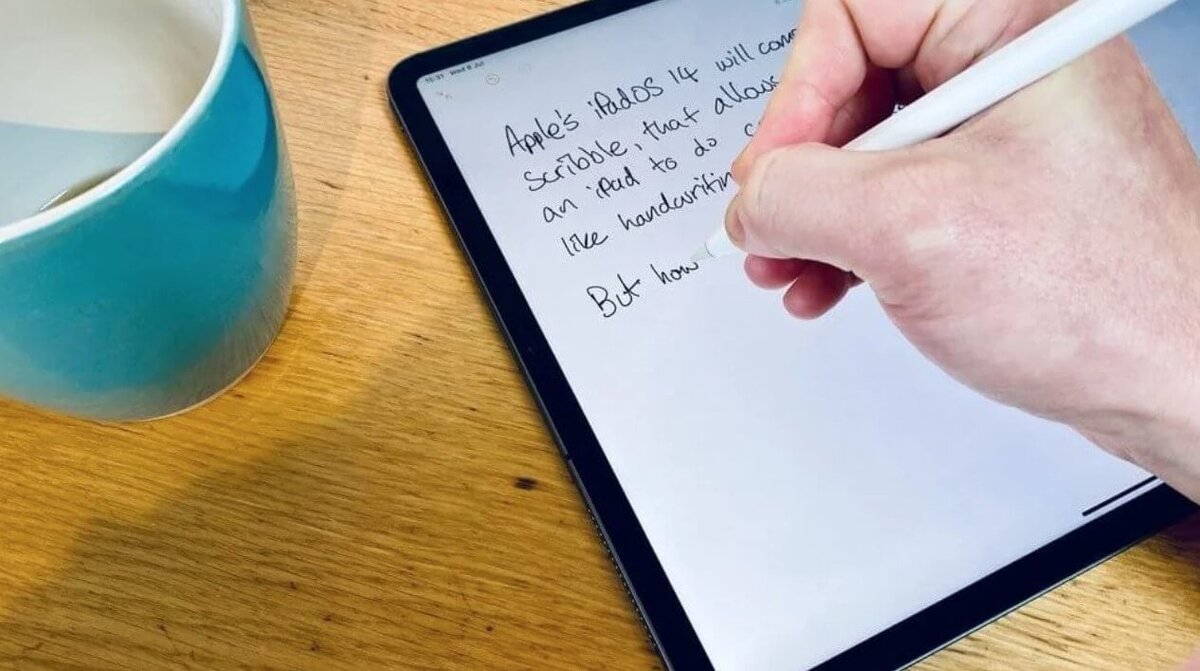 15:31 Wed 8 Jul
Apple's iPadOS 14 will com
scribble, that allows
an iPad to do c
like handwritin
But how